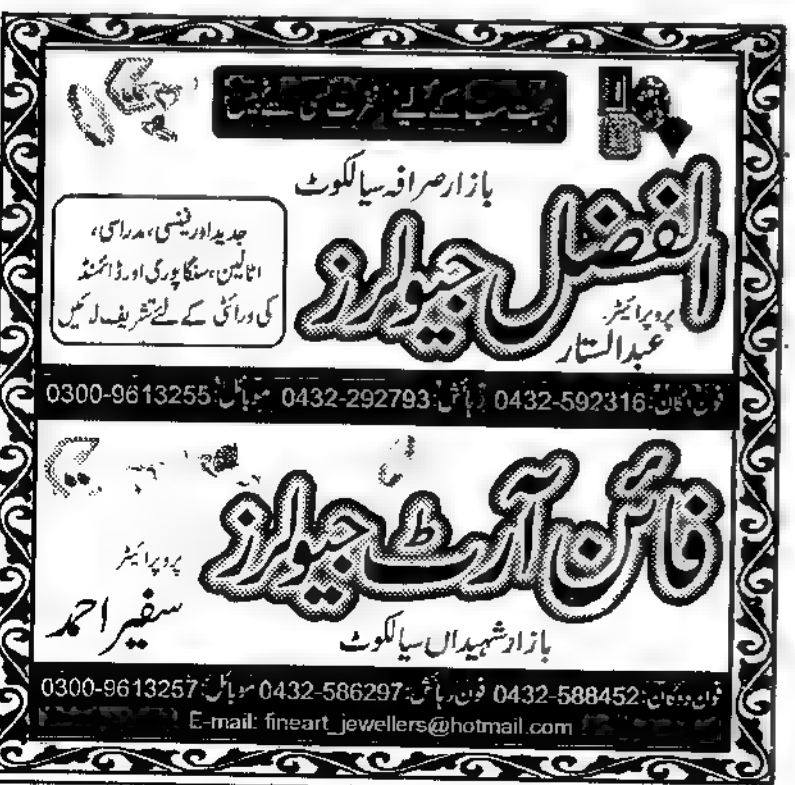 محبت سب کے لئے نفرت کسی سے نہیں
بازار صرافہ سیالکوٹ
الفضل جیولرز
جدید اور فینسی، مدراسی،
اٹالین، سنگاپوری اور ڈائمنڈ
کی ورائٹی کے لئے تشریف لائیں
پروپرائیٹر
عبدالستار
فون دکان: 0432-592316 رہائش: 0432-292793 موبائل: 0300-9613255
فائن آرٹ جیولرز
پروپرائیٹر
سفیر احمد
بازار شہیداں سیالکوٹ
فون دوکان: 0432-588452 فون رہائش: 0432-586297 موبائل: 0300-9613257
E-mail: fineart_jewellers@hotmail.com